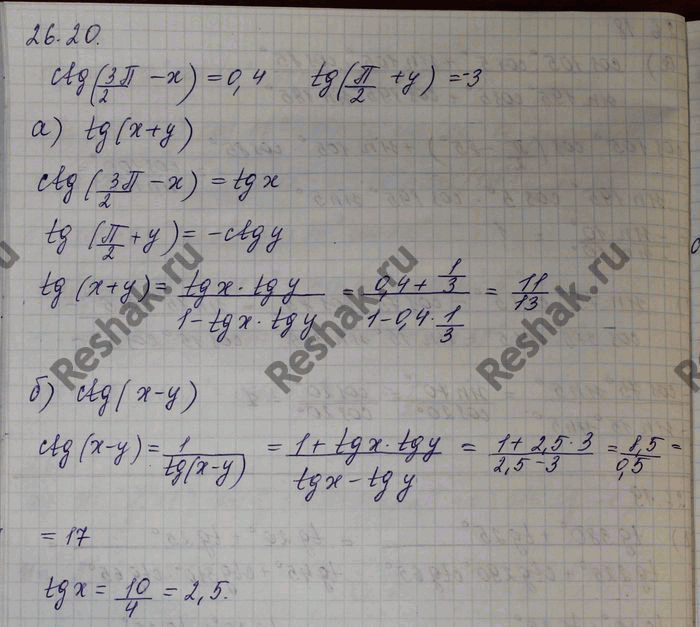 26.20.
ctg(3π/2 − x) = 0,4 tg(π/2 + y) = −3
а) tg(x+y)
ctg(3π/2 − x) = tg x
tg(π/2 + y) = −ctg y
tg(x+y) = (tg x · tg y)/(1 − tg x · tg y) = (0,4 + 1/3)/(1 − 0,4 · 1/3) = 11/13
б) ctg(x−y)
ctg(x−y) = 1/tg(x−y) = (1 + tg x · tg y)/(tg x − tg y) = (1 + 2,5 · 3)/(2,5 − 3) = 8,5/0,5 =
= 17
tg x = 10/4 = 2,5.
Reshak.ru
Reshak.ru
Reshak.ru